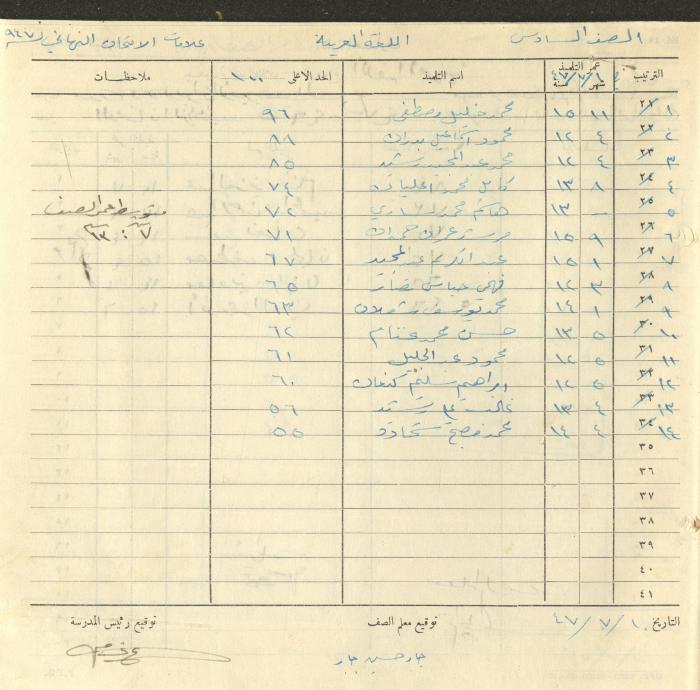 الصف السادس اللغة العربية علامات الامتحان النهائي ٩٤٧
الترتيب عمر التلميذ شهر سنة ٤٧/٧/١ اسم التلميذ الحد الاعلى ١٠٠ ملاحظات
٢١ ١ ١١ ١٥ محمد خليل مصطفى ٩٦
٢٢ ٢ ٤ ١٢ محمود اسماعيل بدران ٨٨
٢٣ ٣ ٤ ١٢ محمد عبد المجيد رشيد ٨٥
٢٤ ٤ ٨ ١٣ كامل محمد ٧٤
٢٥ ٥ - ١٣ هاشم محمد ٧٢ متوسط عمر الصف
٢٦ ٦ ٩ ١٥ ٧١ ٧ ١٣
٢٧ ٧ ١ ١٥ عبد الكريم عبد المجيد ٦٧
٢٨ ٨ ٣ ١٢ فهمي عباس ٦٥
٢٩ ٩ ١ ١٤ محمد يوسف ٦٣
٣٠ ١٠ ٥ ١٣ حسن محمد غنام ٦٢
٣١ ١١ ٥ ١٢ محمود عبد الجليل ٦١
٣٢ ١٢ ٥ ١٢ ابراهيم سليم كنعان ٦٠
٣٣ ١٣ ٤ ١٣ غالب علي رشيد ٥٦
٣٤ ١٤ ٤ ١٤ محمد مصلح شحادة ٥٥
٣٥
٣٦
٣٧
٣٨
٣٩
٤٠
٤١
التاريخ ٤٧/٧/١٠ توقيع معلم الصف توقيع رئيس المدرسة
جابر حسين جابر